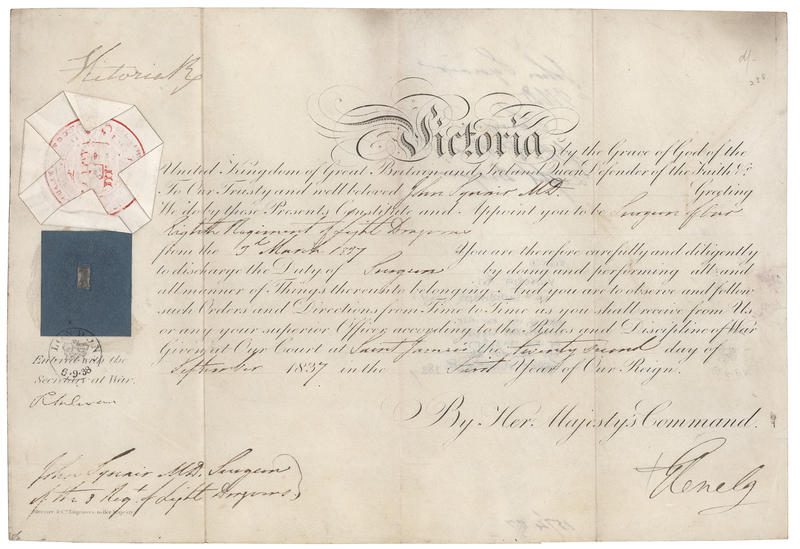 Victoria R
Victoria by the Grace of God of the
United Kingdom of Great Britain and Ireland Queen Defender of the Faith &c
To Our Trusty and well beloved John Squair M.D. Greeting
We do by these Presents Constitute and Appoint you to be Surgeon of Our
Eighth Regiment of Light Dragoons
from the 3d. March 1837 You are therefore carefully and diligently
to discharge the Duty of Surgeon by doing and performing all and
all manner of Things thereunto belonging And you are to observe and follow
such Orders and Directions from Time to Time as you shall receive from Us
or any your superior Officer according to the Rules and Discipline of War
Given at Our Court at Saint James's the twenty second day of
September 1837 in the First Year of Our Reign.
By Her Majesty's Command.
Glenelg
LONDON
6.9.38
Entered with the
Secretary at War.
John Squair M.D. Surgeon
of the 8 Regt. of Light Dragoons